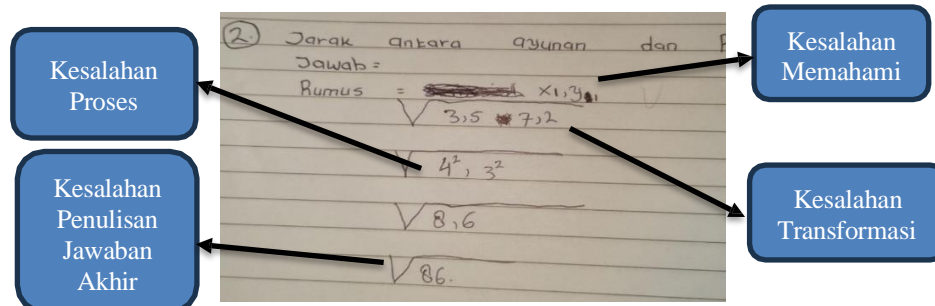 Kesalahan
Proses
Kesalahan
Penulisan
Jawaban
Akhir
2. Jarak antara ayunan dan
Jawab =
Rumus = x1, y1
√3,5 7,2
√4², 3²
√8,6
√86.
Kesalahan
Memahami
Kesalahan
Transformasi